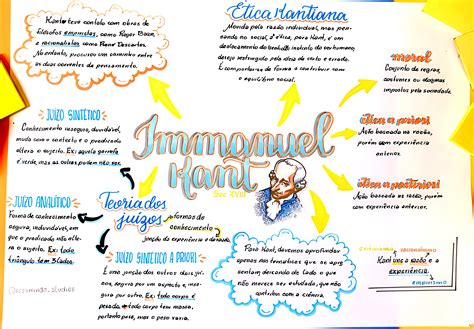 Kant teve contato com obras de
filósofos empiristas, como Roger Bacon, e
racionalistas como René Descartes.
No entanto, procurou um caminho entre
as duas correntes de pensamento.
Ética Kantiana
Movida pela razão individual, mas pen-
sando no social, a ética, para Kant, é um
deslocamento do instinto do ser humano,
desejo restringido pela ideia de certo e errado.
É comportar-se de forma a contribuir com
o equilíbrio social.
moral
Conjunto de regras,
costumes ou dogmas
impostos pela sociedade.
ética a priori
Ação baseada na razão,
porém com experiência
anterior.
ética a posteriori
Ação baseada na razão,
porém sem experiência anterior.
JUIZO SINTÉTICO
Conhecimento inseguro, duvidável,
muda com o contexto e o predicado
altera o sujeito. Ex: aquela garrafa
é verde, mas as outras podem não ser.
Immanuel
Kant
Séc XVIII
JUIZO ANALÍTICO
Forma de conhecimento
segura, indubitável, em
que o predicado não altera
o sujeito. Ex: todo
triângulo tem 3 lados.
Teoria dos
juízos
formas de
conhecimento
junção da experiência e da razão.
JUIZO SINTÉTICO A PRIORI
É uma junção dos outros dois juí-
zos, seguro por um aspecto e in-
seguro por outro. Ex: todo corpo é
pesado, todo corpo tem massa,
portanto pesa, mas o peso varia.
Para Kant, devemos aprofundar
apenas nas temáticas que apre-
sentam deixando de lado o que
não merece ser estudado, que não
contribua com a ciência.
Kant une a razão e a
experiência.